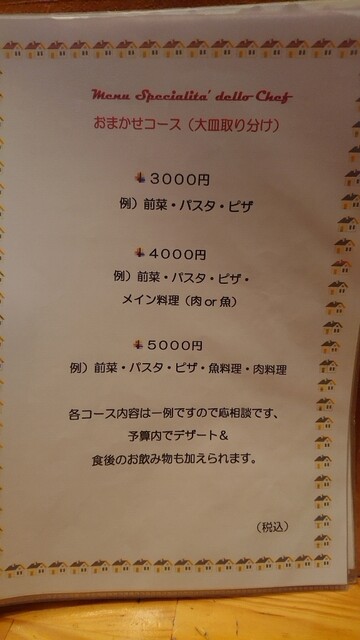 Menu Specialita' dello Chef
おまかせコース（大皿取り分け）
３０００円
例）前菜・パスタ・ピザ
４０００円
例）前菜・パスタ・ピザ・
メイン料理（肉 or 魚）
５０００円
例）前菜・パスタ・ピザ・魚料理・肉料理
各コース内容は一例ですので応相談です、
予算内でデザート＆
食後のお飲み物も加えられます。
（税込）